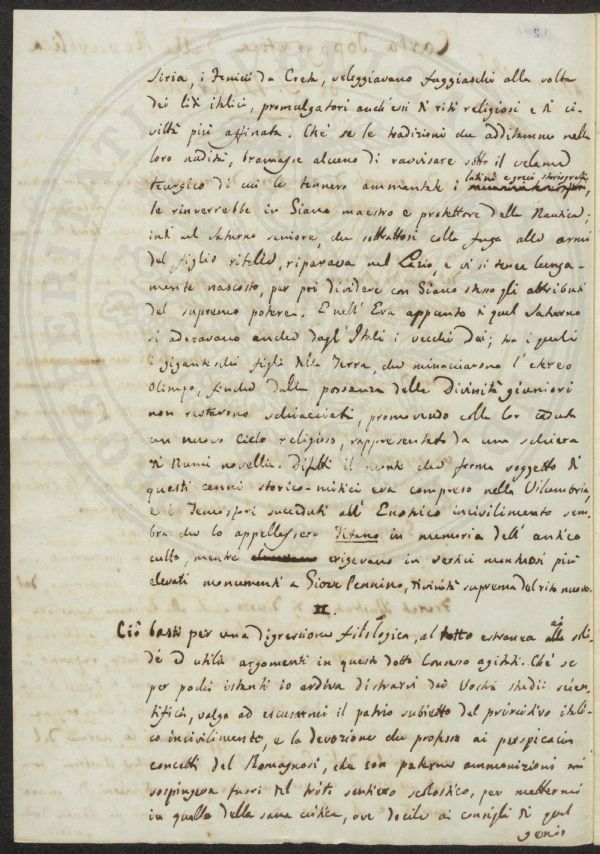 Siria, i Fenicii da Creta, veleggiavano fuggiaschi alla volta
dei lidi italici, promulgatori anch'essi di riti religiosi e di ci-
viltà più affinata. Chè se le tradizioni che additammo nella
loro nudità, bramasse alcuno di ravvisare sotto il velame
teurgico di cui le tennero ammantate i latini e greci storiografi,
le rinverrebbe in Giano maestro e protettore della Nautica;
indi nel Saturno seniore, che sottrattosi colla fuga alle armi
del figlio ribelle, riparava nel Lazio, e vi si tenea lunga-
mente nascosto, per poi dividere con Giano stesso gli attributi
del supremo potere. E nell'Era appunto di quel Saturno
si adoravano anche dagl'Itali i vecchi Dei; tra i quali
i giganteschi figli della Terra, che minacciarono l'etereo
Olimpo, finchè dalla possanza delle Divinità giuniori
non restarono schiacciati, promovendo colla lor caduta
un nuovo ciclo religioso, rappresentato da una schiera
di Numi novelli. Difatti il monte che forma soggetto di
questi cenni storico-mitici era compreso nella Vilumbria,
e i succeduti all'Enotrico incivilimento sem-
bra che lo appellassero Titano in memoria dell'antico
culto, mentre erigevano in vertici montuosi più
elevati monumenti a Giove Pennino, divinità suprema del rito nuovo.
II.
Ciò basti per una digressione filologica, al tutto estranea ai soli-
di ed utili argomenti in questo dotto Consesso agitati. Chè se
per pochi istanti io ardiva distrarvi dai Vostri studii scien-
tifici, valga ad escusarmi il patrio subietto del primitivo itali-
co incivilimento, e la devozione che professo ai perspicaci
concetti del Romagnosi, che con paterne ammonizioni mi
sospingeva fuori del trito sentiero scolastico, per mettermi
in quello della sana critica, ove docile ai consigli di quel
genio